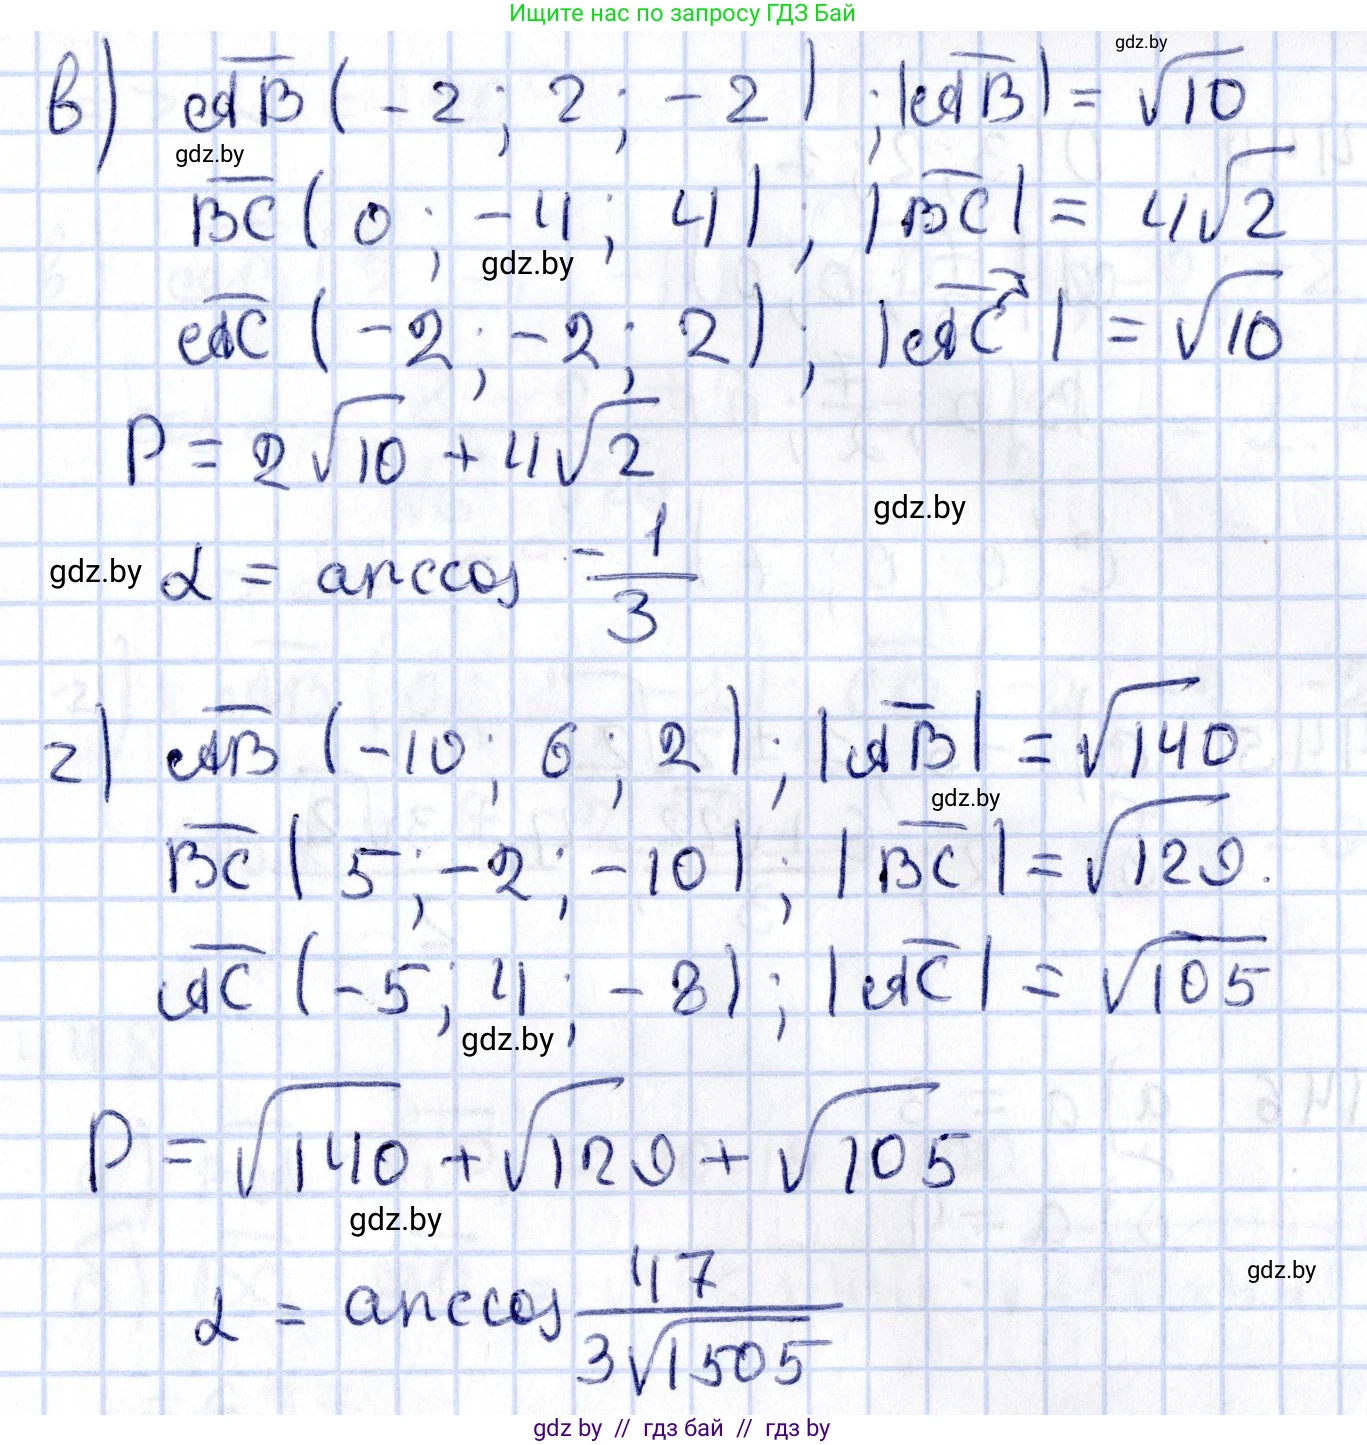 Ищите нас по запросу ГДЗ Бай
gdz.by
в) AB (-2; 2; -2); |AB| = √10
gdz.by
BC (0; -4; 4); |BC| = 4√2
gdz.by
AC (-2; -2; 2); |AC| = √10
P = 2√10 + 4√2
gdz.by
gdz.by
α = arccos -1/3
г) AB (-10; 6; 2); |AB| = √140
gdz.by
BC (5; -2; -10); |BC| = √129.
AC (-5; 4; -8); |AC| = √105
gdz.by
P = √140 + √129 + √105
gdz.by
gdz.by
α = arccos 47/3√1505
gdz.by // гдз бай // гдз by